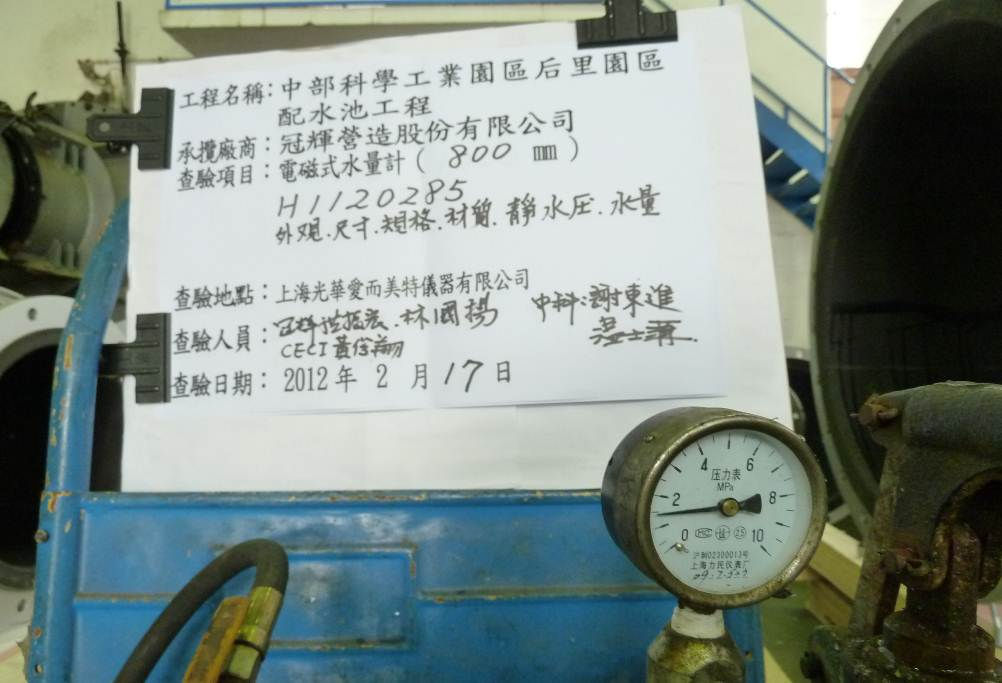 工程名稱:中部科學工業園區后里園區
配水池工程
承攬廠商:冠輝營造股份有限公司
查驗項目:電磁式水量計( 800 ㎜ )
H1120285
外观.尺寸.規格.材質.靜水圧.水量
查驗地點:上海光華愛而美特儀器有限公司
查驗人員:林國楊 中科:謝東進
CECI
查驗日期:2012年 2 月17日
4 6
压力表
MPa
2 8
0 10
2.5
沪制02300013号
上海力民仪表厂